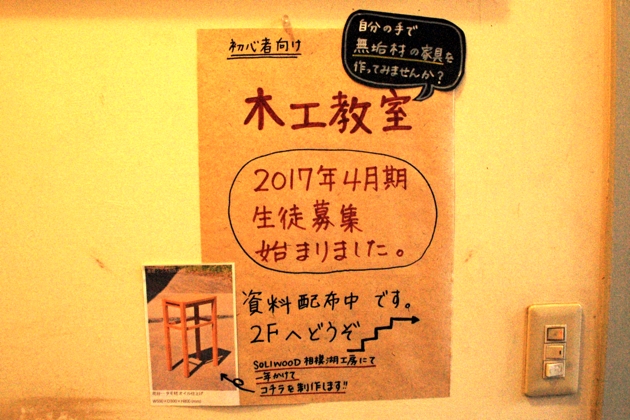 初心者向け
自分の手で
無垢材の家具を
作ってみませんか?
木工教室
2017年4月期
生徒募集
始まりました。
資料配布中です。
2Fへどうぞ
SOLIWOOD相模湖工房にて
一年かけて
コチラを制作します!!